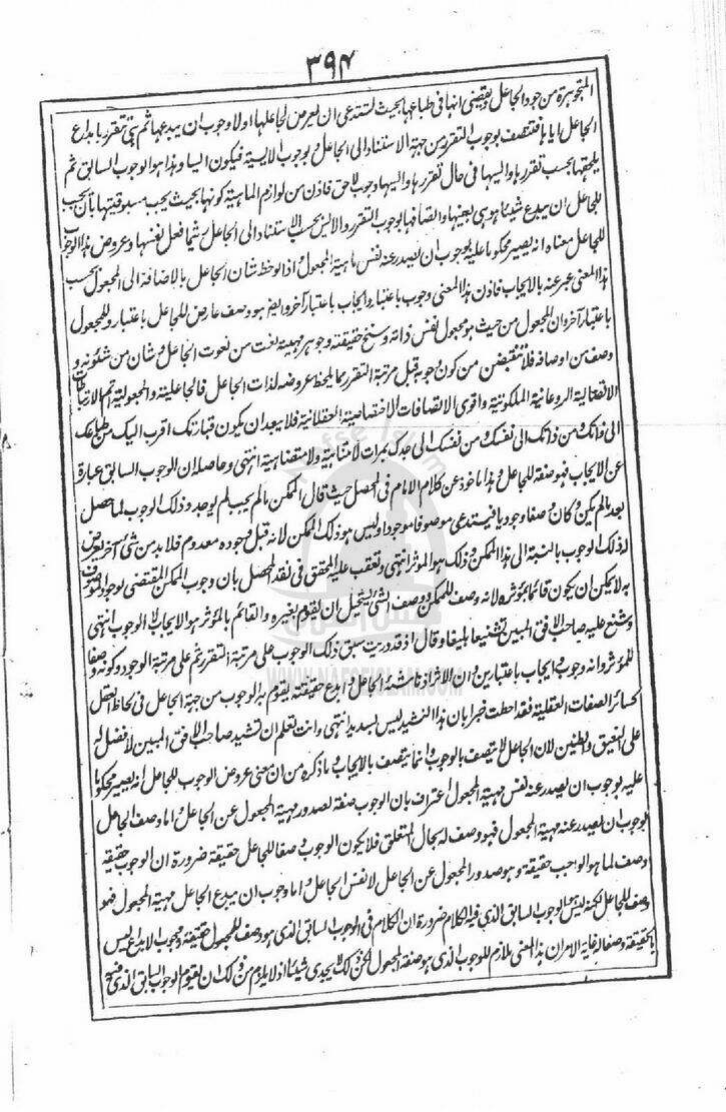 ٣٩٤
المتجوهرة من جود الجاعل ويقتضى انها فى طباعها بحيث تستدعى ان يعرض لجاعلها اولا وجوب ان يبدعها ثم هى تتقرر بابداع
الجاعل اياها فتتصف بوجوب التقرر من جهة الاستناد الى الجاعل وبوجوب الايسية فيكون اليها وهذا هو الوجوب السابق ثم
يلحقها بحسب تقررها واليها فى حال تقررها واليها وجوب لاحق فاذن من لوازم الماهية كونها بحيث يجب مسبوقيتها بان يجب
للجاعل ان يبدع شيئا هو هى بعينها واتصافها بوجوب التقرر والايس بحسب الاستناد الى الجاعل فعل نفسها وعروض هذا الوجوب
للجاعل معناه انه يصير محكوما عليه بوجوب ان يصدر عنه نفس ماهية المجعول اذا لوحظ شان الجاعل بالاضافة الى المجعول بحسب
هذا المعنى عبر عنه بالايجاب فاذن هذا المعنى وجوب باعتبار وايجاب باعتبار آخر وايضا هو وصف عارض للجاعل باعتبار وللمجعول
باعتبار آخر وان المجعول من حيث هو مجعول نفس ذاته وسنخ حقيقته وجوهر مهيته نعت من نعوت الجاعل وشان من شئونه و
وصف من اوصافه فلا تنقبضن من كون وجوبه قبل مرتبة التقرر مما يلحظ عروضه لذات الجاعل فالجاعلية والمجعولية اتم الارتباطات
الانفعالية الروعانية الملكوتية واقوى الاتصافات الاختصاصية العقلانية فلا يبعد ان يكون قبارتك اقرب اليك من طباعك
الى ذاتك ومن ذاتك الى نفسك ومن نفسك الى جدك بمرات لا متناهية ولا متضاهية انتهى وحاصله ان الوجوب السابق عبارة
عن الايجاب فهو صفة للجاعل وهذا ماخوذ عن كلام الامام فى المحصل حيث قال الممكن مالم يجب لم يوجد وذلك الوجوب لما حصل
بعد مالم يكن وكان وصفا وجوديا فيستدعى موصوفا موجودا وليس هو ذلك الممكن لانه قبل وجوده معدوم فلا بد من شئ آخر يعرض
لذلك الوجوب بالنسبة الى هذا الممكن وذلك هو الموثر انتهى وتعقب عليه المحقق فى نقد المحصل بان وجوب الممكن المقتضى لوجود الموصوف
به لا يمكن ان يكون قائما بمؤثره لانه وصف للممكن ووصف الشئ يستحيل ان يقوم بغيره والقائم بالمؤثر هو الايجاب لا الوجوب انتهى
وشنع عليه صاحب الافق المبين تشنيعا بليغا وقال اذ قد دريت سبق ذلك الوجوب على مرتبة التقرر ثم على مرتبة الوجود وكونه وصفا
للموثر وانه وجوب وايجاب باعتبارين وان الاثر اذ ناشئة الجاعل وابدع حقيقته يقوم به الوجوب من جهة الجاعل فى لحاظ العقل
كسائر الصفات العقلية فقد احطت خبرا بان هذا التشنيد ليس بسديد انتهى وانت تعلم ان تشنيد صاحب الافق المبين لا فضل له
على النعيق والطنين لان الجاعل لا يتصف بالوجوب وانما يتصف بالايجاب وما ذكره من ان معنى عروض الوجوب للجاعل انه يصير محكوما
عليه بوجوب ان يصدر عنه نفس مهية المجعول اعتراف بان الوجوب صفة لصدور مهية المجعول عن الجاعل واما وصف الجاعل
بوجوب ان يصدر عنه مهية المجعول فهو وصف له بحال المتعلق فلا يكون الوجوب وصفا للجاعل حقيقة ضرورة ان الوجوب حقيقة
وصف لما هو الواجب حقيقة وهو صدور المجعول عن الجاعل لا نفس الجاعل واما وجوب ان يبدع الجاعل مهية المجعول فهو
وصف للجاعل لكنه ليس الوجوب السابق الذى فيه الكلام ضرورة ان الكلام فى الوجوب السابق الذى هو وصف للمجعول حقيقة ووجوب الابداع ليس
بالحقيقة وصفا له غاية الامر ان هذا المعنى ملازم للوجوب الذى هو صفة المجعول لكن ذلك لا يجدى شيئا اذ لا يلزم من ذلك ان يقوم الوجوب السابق الذى فيه
WWW.NAFSEISLAM.COM